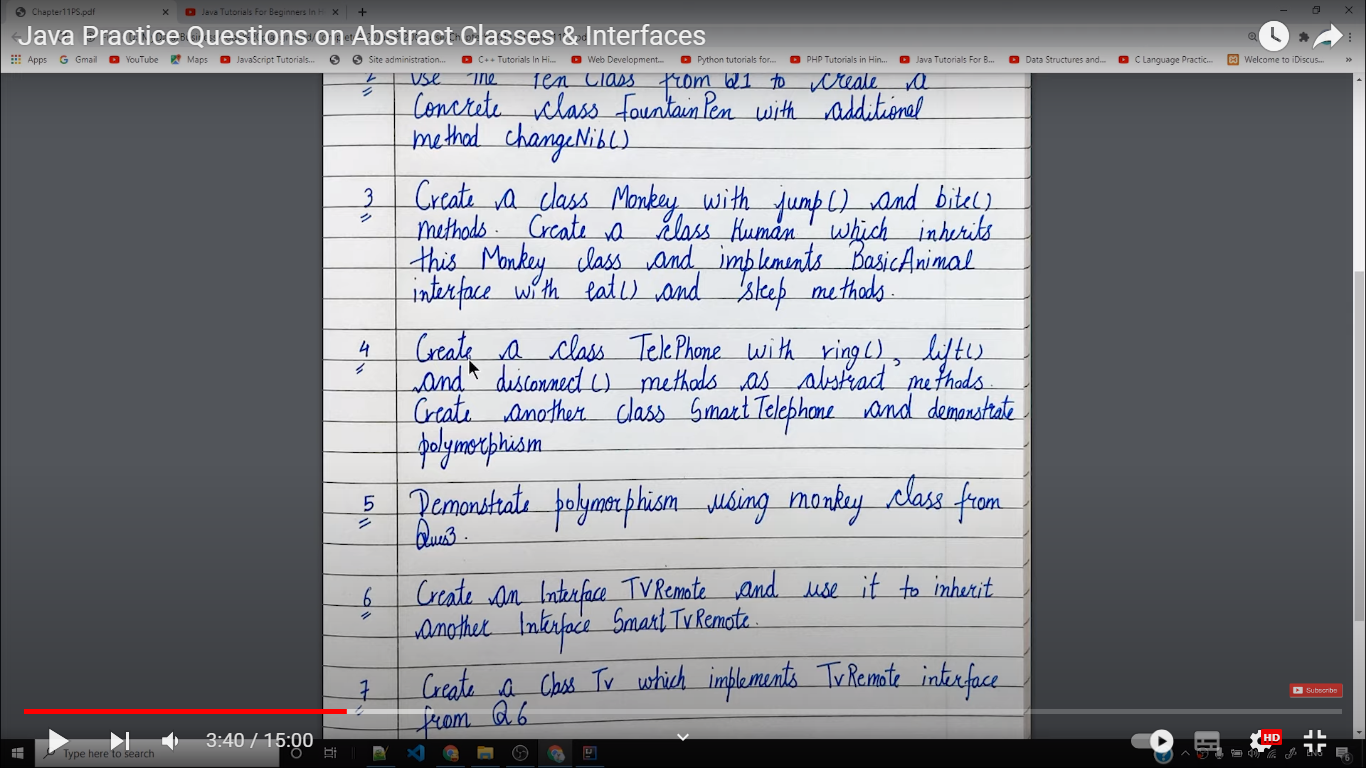 Chapter11PS.pdf
Java Tutorials For Beginners In H
Java Practice Questions on Abstract Classes & Interfaces
Apps Gmail YouTube Maps JavaScript Tutorials... Site administration... C++ Tutorials In Hi... Web Development... Python tutorials for... PHP Tutorials in Hin... Java Tutorials For B... Data Structures and... C Language Practic... Welcome to iDiscus... »
2 Use the Pen Class from Q1 to create a
Concrete class FountainPen with additional
method changeNib()
3 Create a class Monkey with jump() and bite()
methods. Create a class Human which inherits
this Monkey class and implements BasicAnimal
interface with eat() and sleep methods.
4 Create a class TelePhone with ring(), lift()
and disconnect() methods as abstract methods.
Create another class SmartTelephone and demonstrate
polymorphism
5 Demonstrate polymorphism using monkey class from
Ques3.
6 Create an Interface TVRemote and use it to inherit
another Interface SmartTvRemote.
7 Create a Class Tv which implements TvRemote interface
from Q6
Subscribe
3:40 / 15:00
HD
Type here to search
ENG